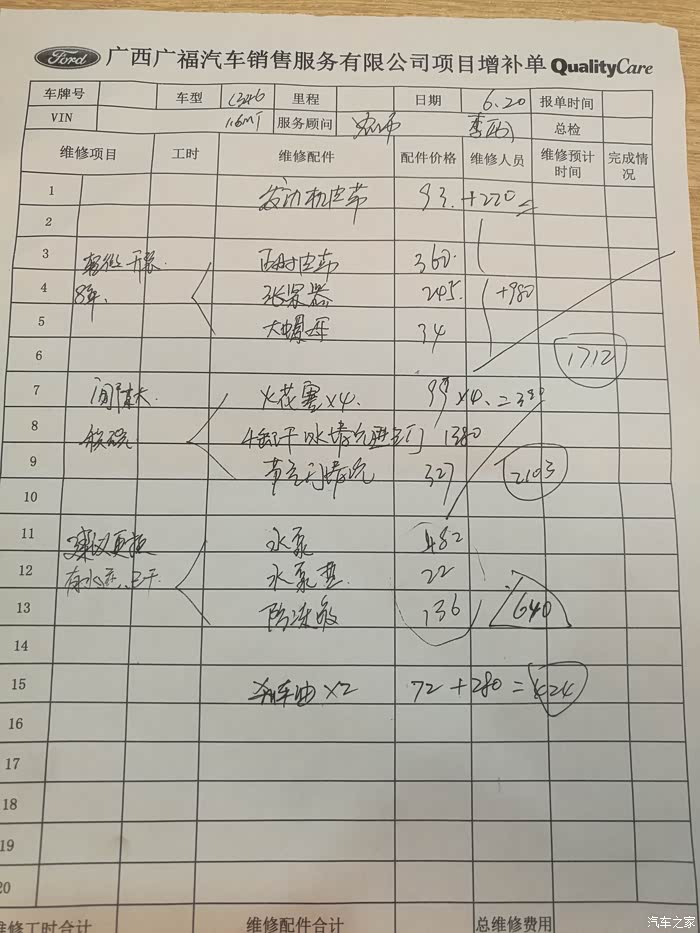 Ford 广西广福汽车销售服务有限公司项目增补单 QualityCare
车牌号 车型 里程 日期 6.20 报单时间
VIN 1.6MT 服务顾问 总检
维修项目 工时 维修配件 配件价格 维修人员 维修预计时间 完成情况
1 发动机皮带 93 +220
2
3 正时皮带 360
4 8年、 张紧器 245 +980
5 大螺母 34
6 1712
7 火花塞×4 99 ×4、=
8 1380
9 327 2103
10
11 建议更换 水泵 482
12 水泵垫 22
13 防冻液 136 640
14
15 刹车油×2 72+280=424
16
17
18
19
20
维修工时合计 维修配件合计 总维修费用
汽车之家